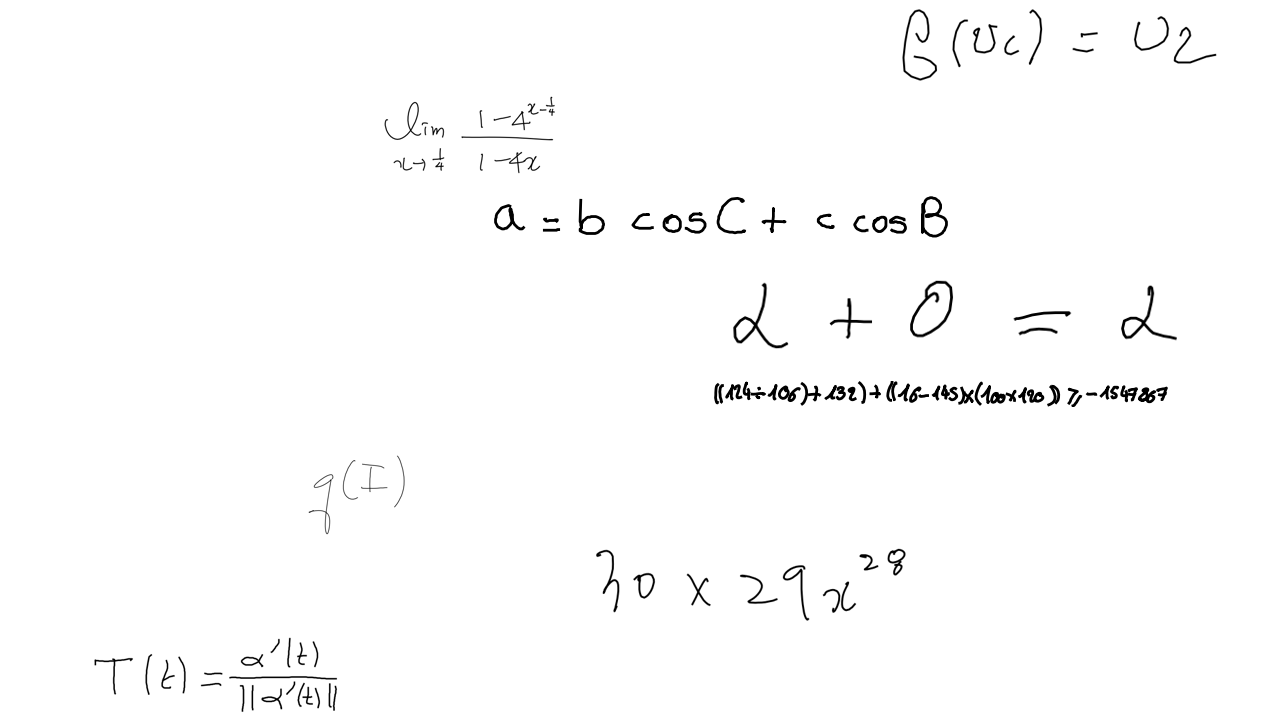 β(υc) = υ2
lim x→1/4 (1-4^(x-1/4))/(1-4x)
a = b cosC + c cosB
α + 0 = α
((124÷106)+132)+((16-145)×(100×120)) ⩾ -1547867
q(I)
30 × 29x^28
T(t) = α'(t)/||α'(t)||